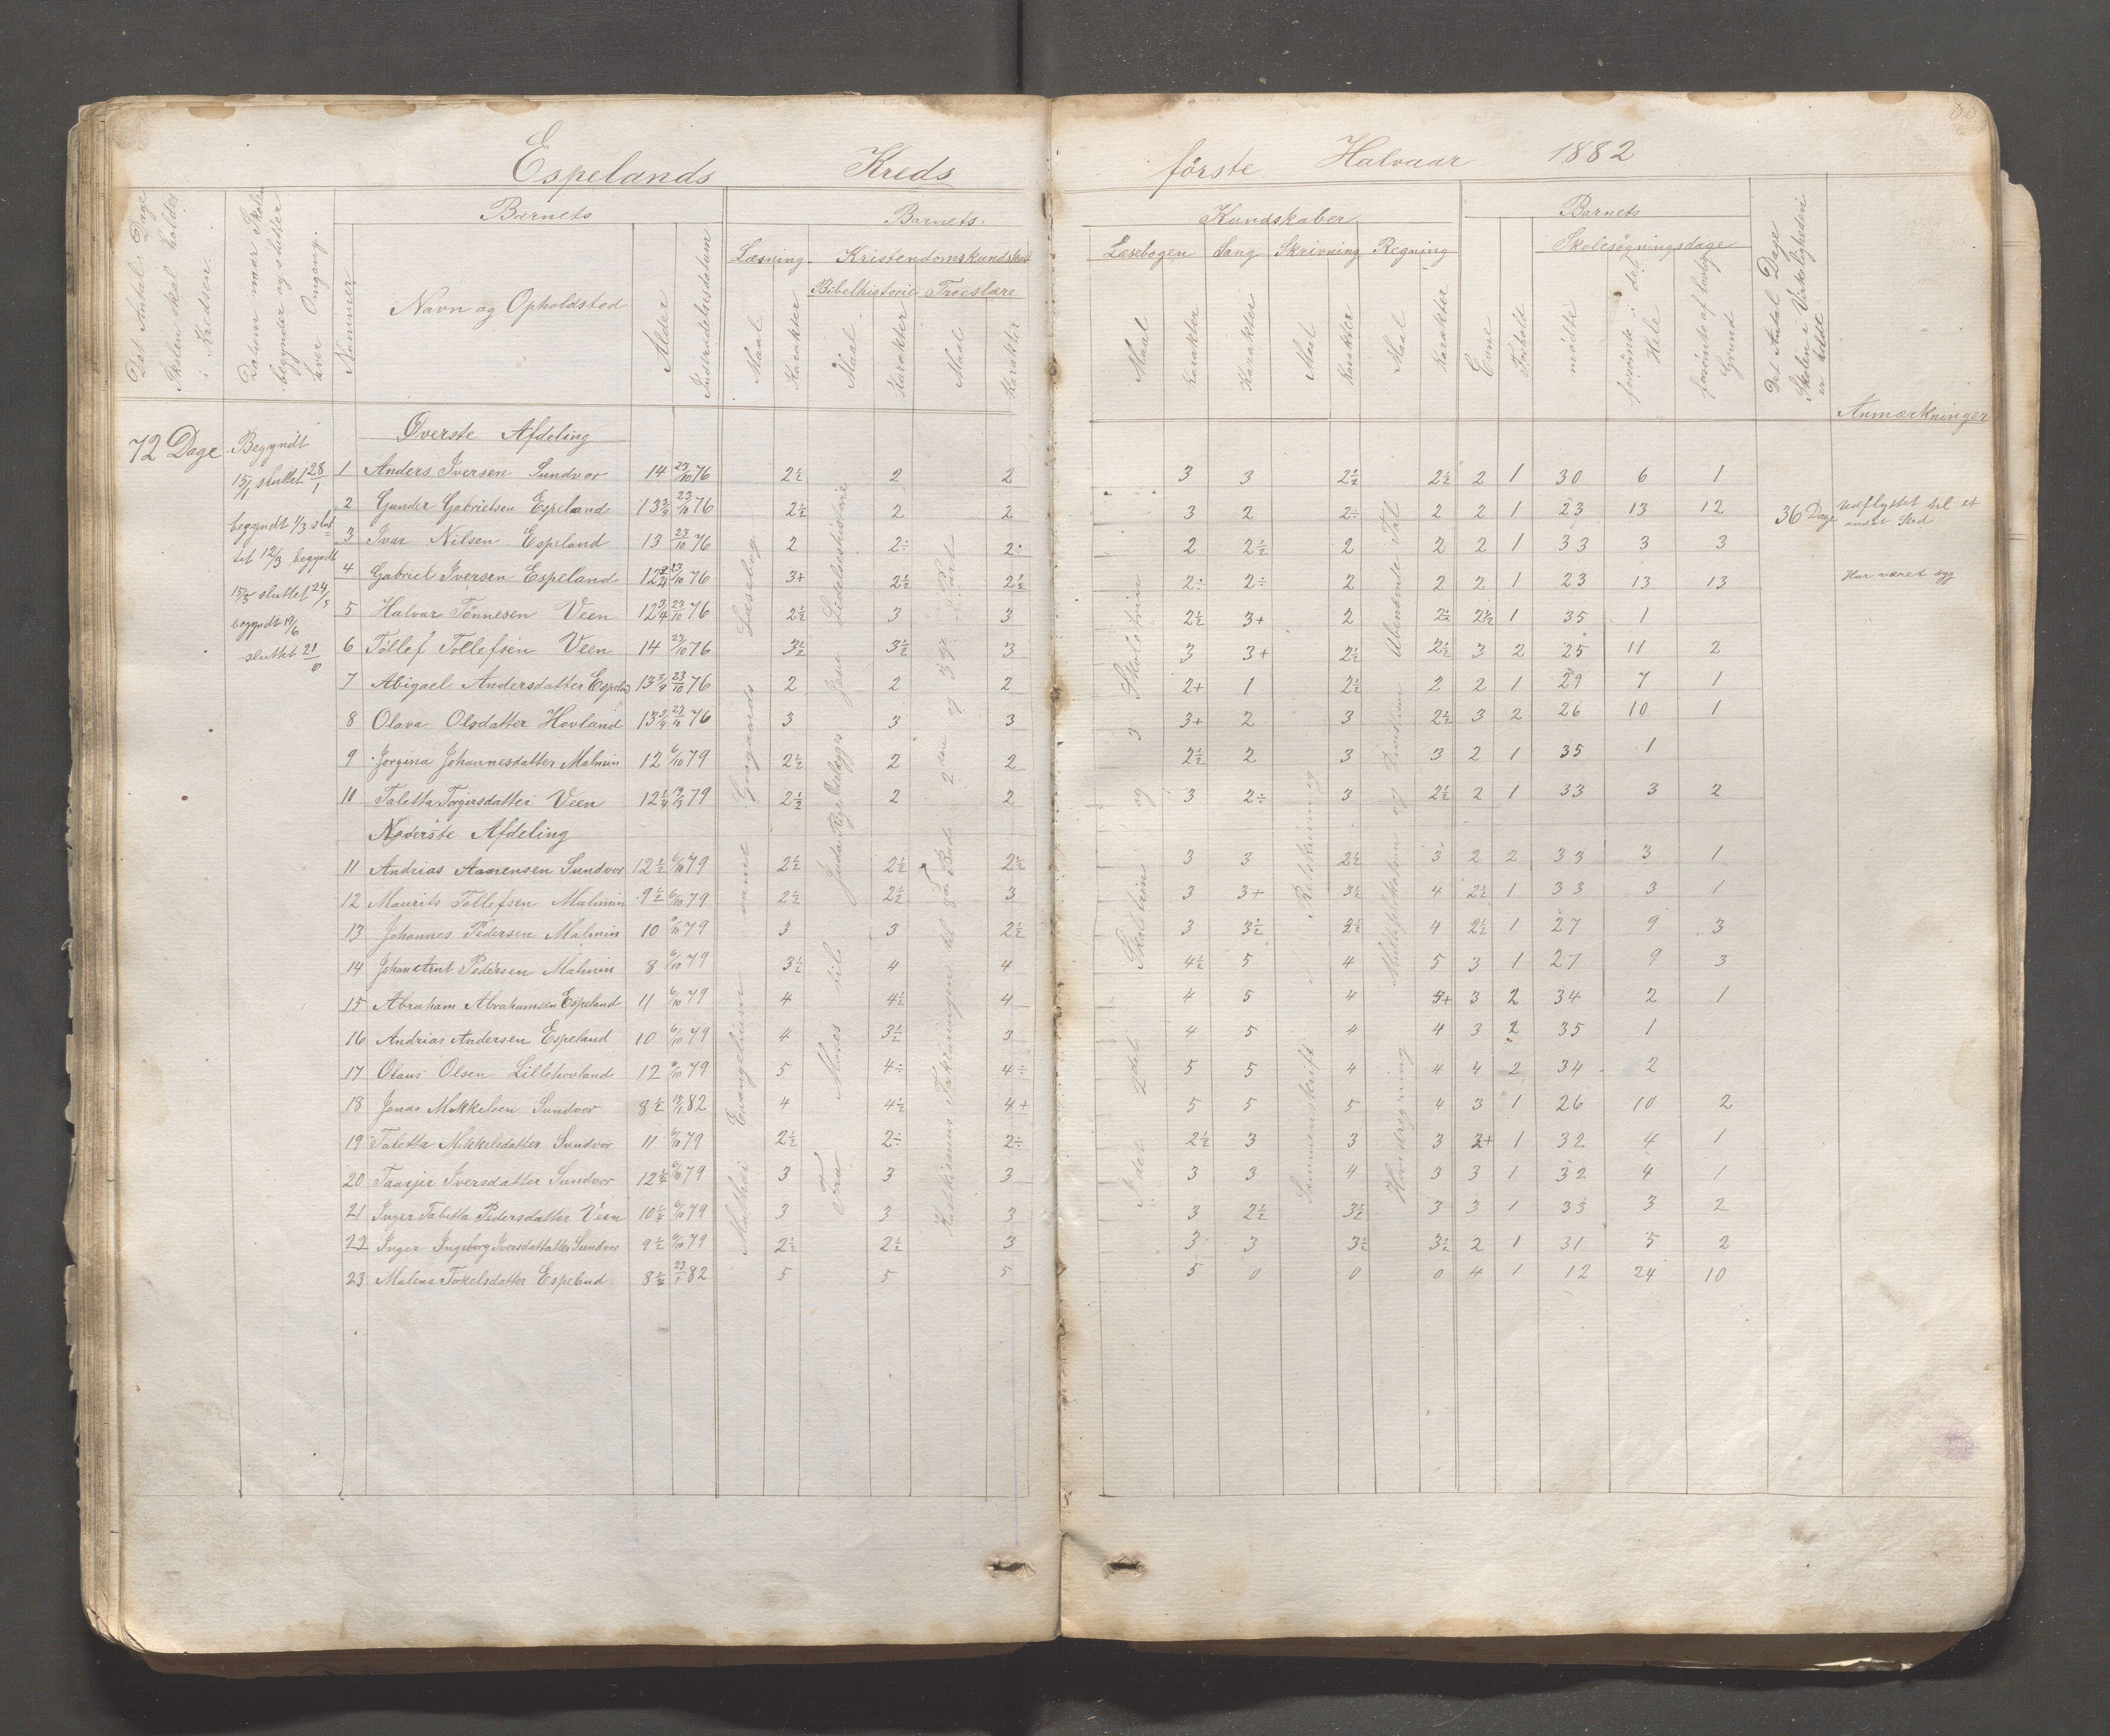 Espelands Kreds første Halvaar 1882
Det Antal Dage Skolen skal holdes i Kredsen
Datum naar Skolen begynder og slutter hver Omgang.
Nummer
Barnets
Navn og Opholdsted
Alder
Indtrædelsesdatum
Barnets
Læsning
Maal
Karakter
Kristendomskundskab
Bibelhistorie
Maal
Karakter
Troeslære
Maal
Karakter
Kundskaber
Læsebogen
Maal
Karakter
Sang
Karakter
Skrivning
Maal
Karakter
Regning
Maal
Karakter
Evne
Forhold
Barnets
Skolesøgningsdage
mødte
forsømte i det Hele
forsømte af lovlig Grund
Det Antal Dage Skolen i Virkeligheden er holdt
Anmærkninger
72 Dage
Begyndt
15/1 sluttet 28/1
begyndt 1/3 slut
tet 12/3 begyndt
15/5 sluttet 24/5
begyndt 19/6
sluttet 21/6
Øverste Afdeling
1 Anders Iversen Sundvor 14 23/10 76 2½ 2 2 3 3 2½ 2½ 2 1 30 6 1
2 Gunder Gabrielsen Espeland 13¾ 23/10 76 2½ 2 2 3 2 2÷ 2 2 1 23 13 12 36 Dage Udflyttet til et andet Sted
3 Ivar Nilsen Espeland 13 23/10 76 2 2÷ 2÷ 2 2½ 2 2 2 1 33 3 3
4 Gabriel Iversen Espeland 12¾ 23/10 76 3+ 2½ 2½ 2÷ 2÷ 2 2 2 1 23 13 13 Har været syg
5 Halvar Tønnesen Veen 12¾ 23/10 76 2½ 3 3 2½ 3+ 2 2½ 2½ 1 35 1
6 Tøllef Tollefsen Veen 14 23/10 76 3½ 3½ 3 3 3+ 2½ 2½ 3 2 25 11 2
7 Abigael Andersdatter Espeland 13¾ 23/10 76 2 2 2 2+ 1 2½ 2 2 1 29 7 1
8 Olava Olsdatter Hovland 13¾ 23/10 76 3 3 3 3+ 2 3 2½ 3 2 26 10 1
9 Jorgina Johannesdatter Malmin 12 6/10 79 2½ 2 2 2½ 2 3 3 2 1 35 1
10 Taletta Torgersdatter Veen 12¼ 79 2½ 2 2 3 2÷ 3 2½ 2 1 33 3 2
Nederste Afdeling
11 Andrias Aanensen Sundvor 12½ 6/10 79 2½ 2½ 2½ 3 3 2½ 3 2 2 33 3 1
12 Maurits Tollefsen Malmin 9½ 6/10 79 2½ 2½ 3 3 3+ 3½ 4 2½ 1 33 3 1
13 Johannes Pedersen Malmin 10 6/10 79 3 3 2½ 3 3½ 3½ 4 2½ 1 27 9 3
14 Johan Arnt Pedersen Malmin 8 6/10 79 3½ 4 4 4½ 5 4 5 3 1 27 9 3
15 Abraham Abrahamsen Espeland 11 6/10 79 4 4½ 4 4 5 4 5+ 3 2 34 2 1
16 Andrias Andersen Espeland 10 6/10 79 4 3½ 3 4 5 4 4 3 2 35 1
17 Olaus Olsen Lillehovland 12 6/10 79 5 4÷ 4÷ 5 5 4 4 4 2 34 2
18 Jonas Mikkelsen Sundvor 8½ 15/1 82 4 4½ 4+ 5 5 5 4 3 1 26 10 2
19 Taletta Mikkelsdatter Sundvor 11 6/10 79 2½ 2÷ 2÷ 2½ 3 3 3 2+ 1 32 4 1
20 Taarjer Iversdatter Sundvor 12½ 6/10 79 3 3 3 3 3 4 3 3 1 32 4 1
21 Inger Tabetta Pedersdatter Veen 10¼ 6/10 79 3 3 3 3 2½ 3½ 3 3 1 33 3 2
22 Inger Ingeborg Iversdattatter Sundvor 9½ 6/10 79 2½ 2½ 3 3 3 3½ 3½ 2 1 31 5 2
23 Malena Tokelsdatter Espelnd 8½ 23/1 82 5 5 5 5 0 0 0 4 1 12 24 10
Mathæi Evangelium samt Grogaards Læsebog
Fra Moses til Juda Rige Ødelægges Jesu Lidelseshistorie
Katekismus Forklaringen til 3die Bøn 2den og 3die Part
1ste 2det Skoletrin og 3 Skoletrin
Sammenskrift Retskrivning
Hovedregning Multiplikation og Division Ubenævnte Tal